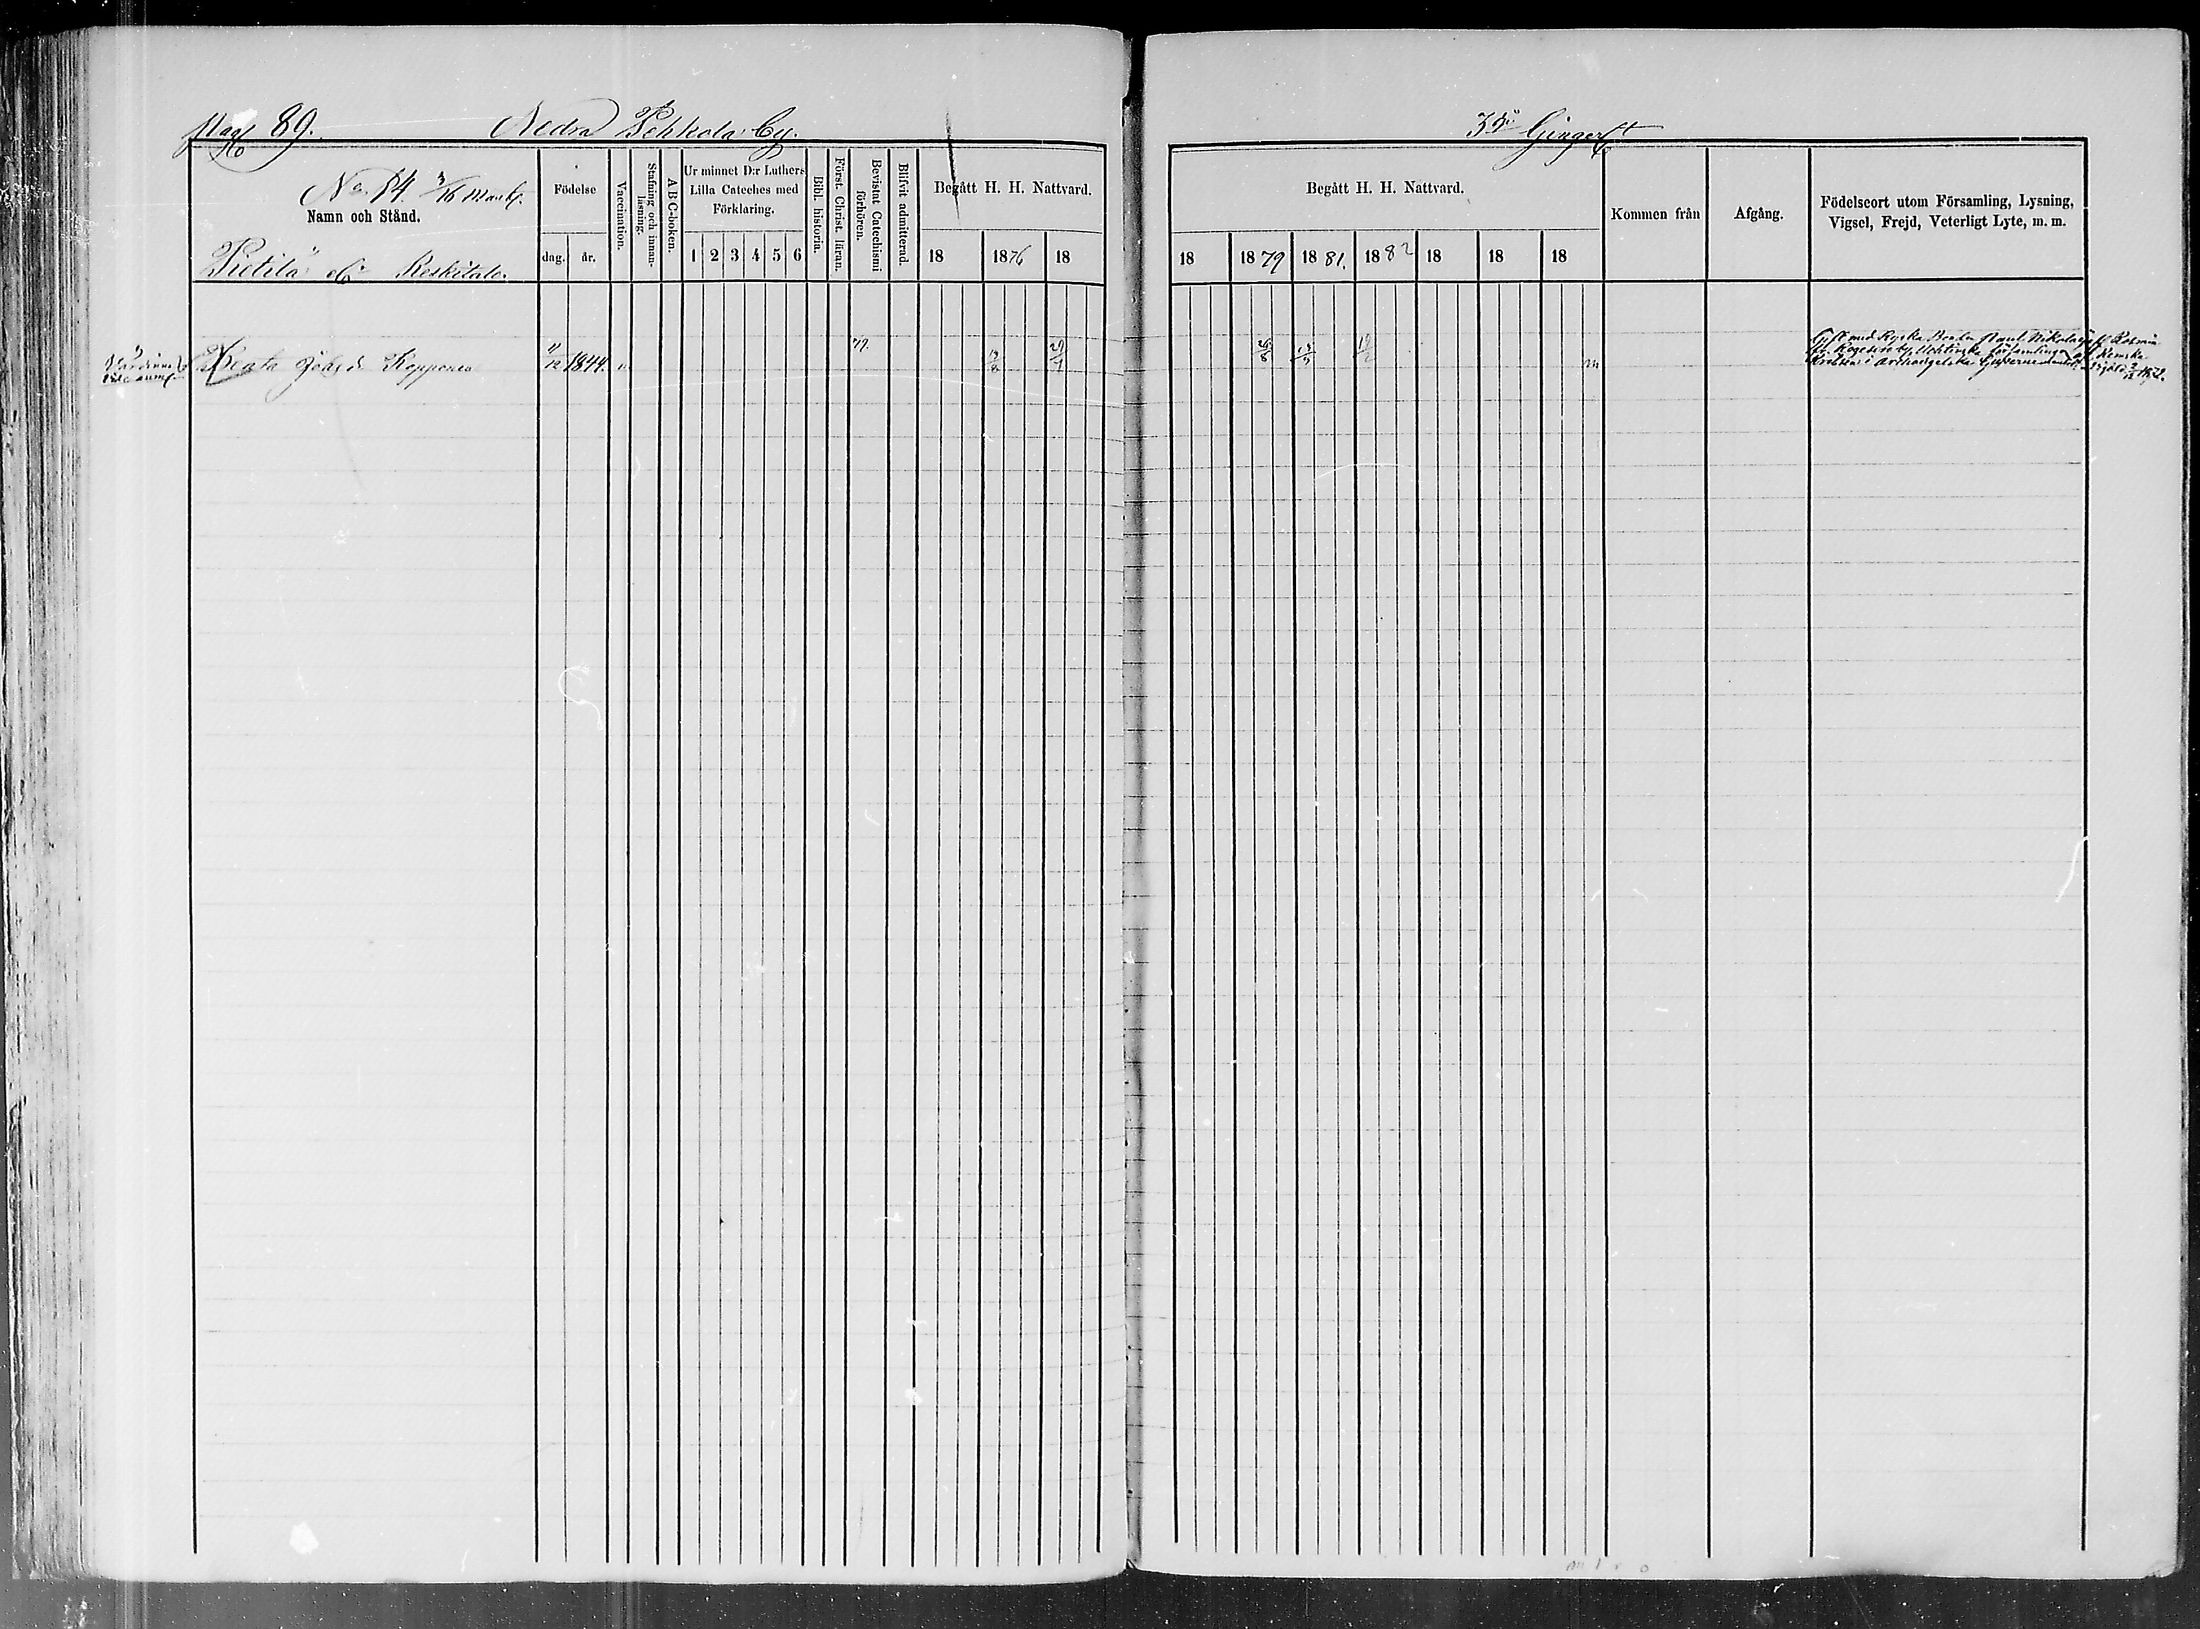 89. Nedra Pekkola by.
No 14. 3/16 Mantl.
Namn och Stånd.
Födelse
dag. år.
Vaccination.
Stafning och innanläsning.
A B C-boken.
Ur minnet D:r Luthers
Lilla Cateches med
Förklaring.
1 2 3 4 5 6
Bibl. historia.
Först. Christ. läran.
Bevistat Catechismi förhören.
Blifvit admitterad.
Begått H. H. Nattvard.
18 1876 18
Pietilä Keskitalo
Beata Joh:s d. Kopponen 11/12 1844. 77.
Begått H. H. Nattvard.
18 1879 1881. 1882 18 18 18
Kommen från
Afgång.
Födelseort utom Församling, Lysning,
Vigsel, Frejd, Veterligt Lyte, m. m.
Gift med Ryska Bonden Paul Nikolajeff
by församlingen
i Archangelska Guvernementet 1872.